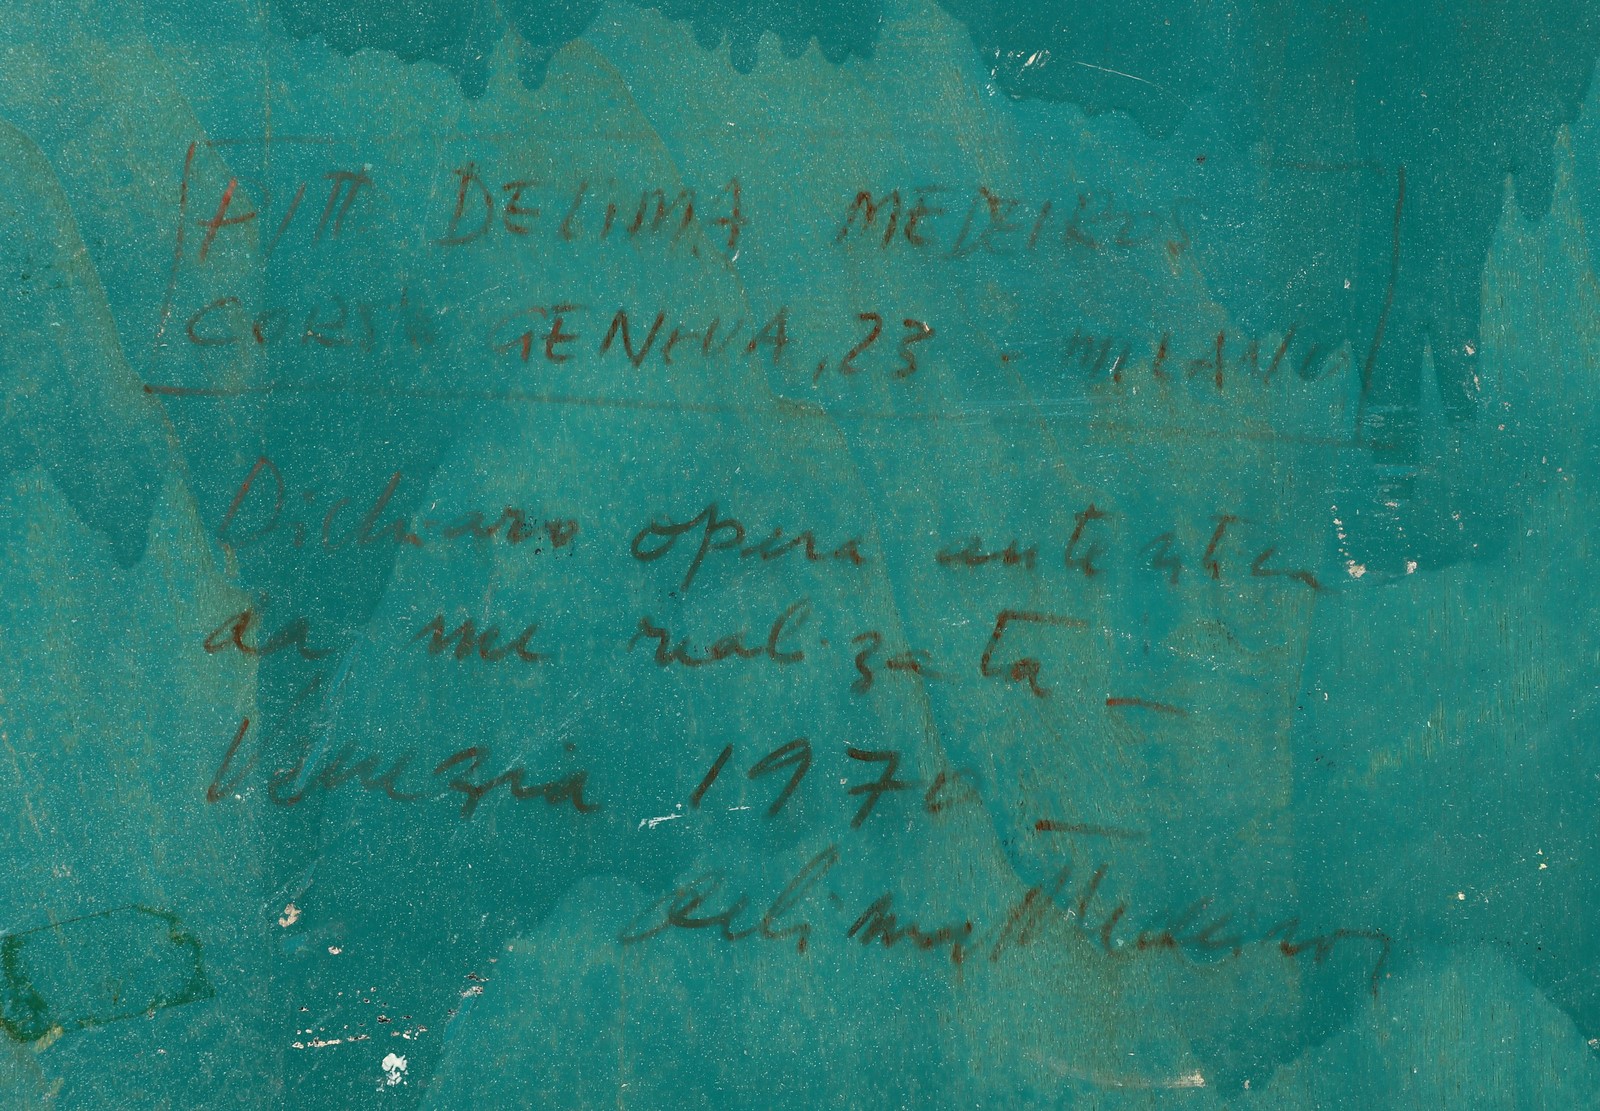 PITT. DELIMA MEDEIROS
CORSO GENOVA, 23 - MILANO
Dichiaro opera autentica
da me realizzata _
Venezia 1970 _
Delima Medeiros